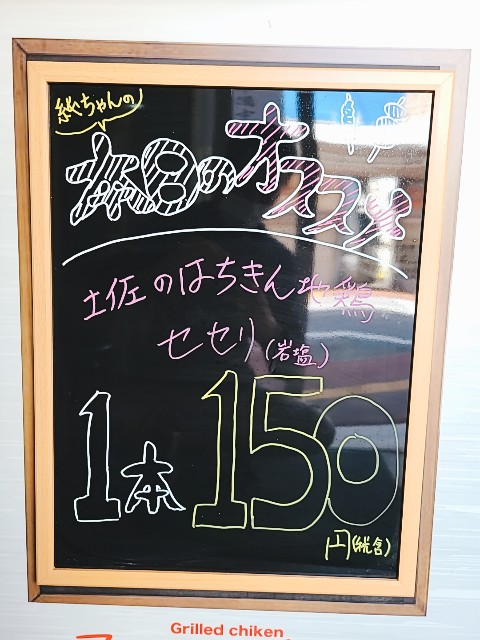 ちゃんの
本日のオススメ
土佐のはちきん地鶏
セセリ(岩塩)
1本 150
円(税含)
Grilled chiken